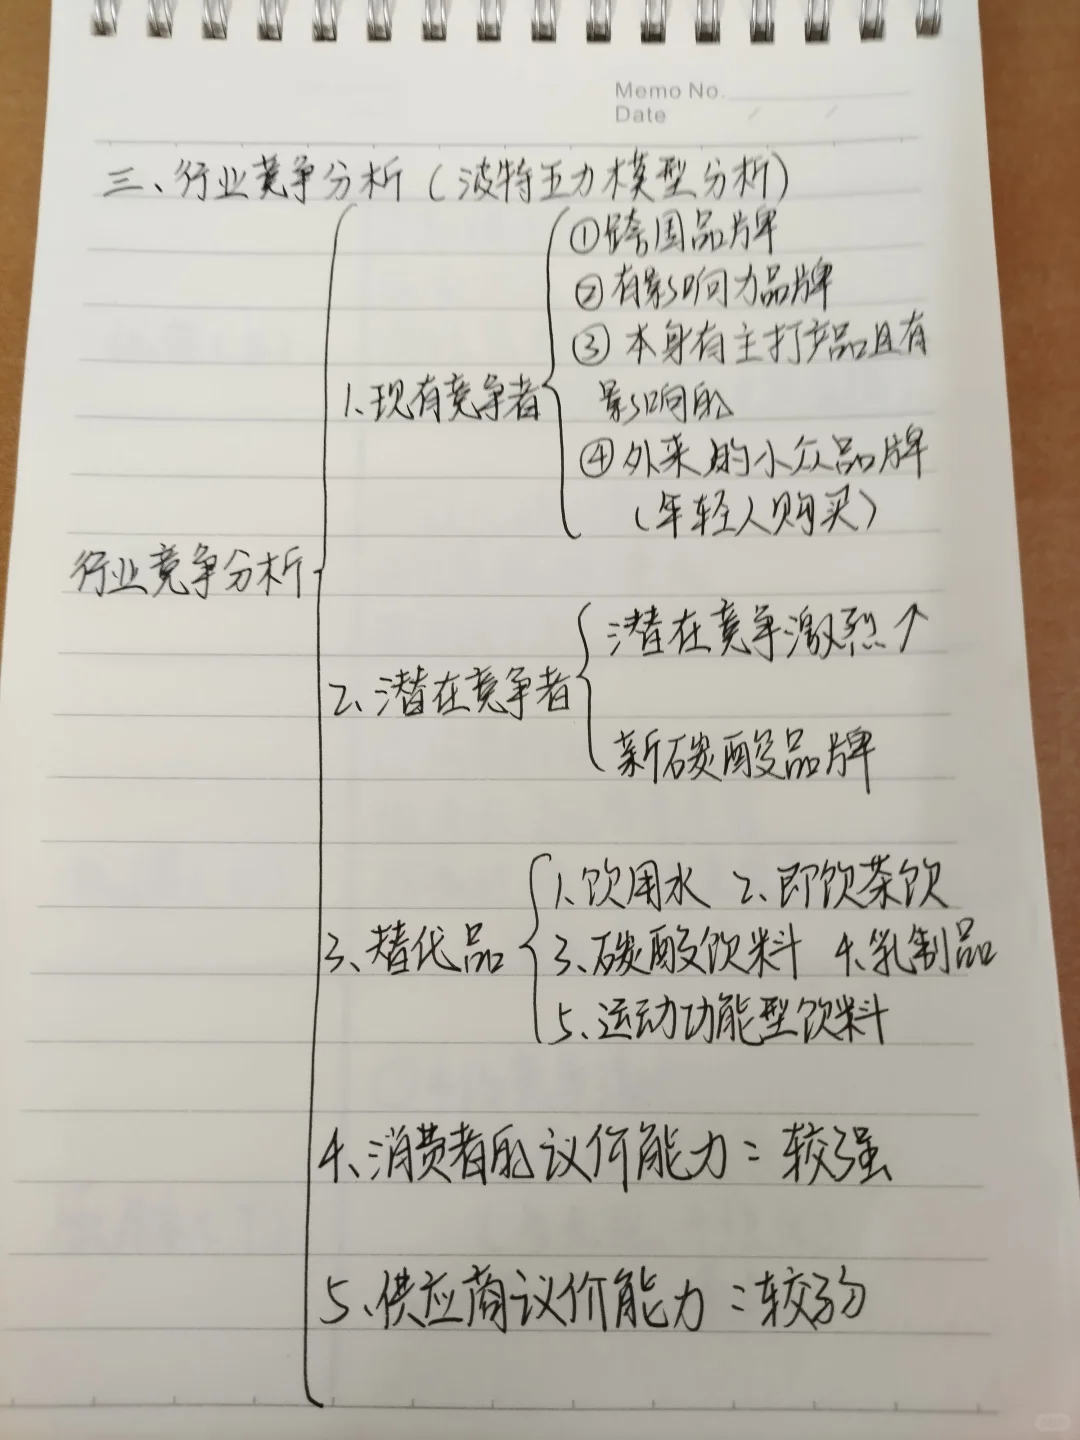 Memo No.
Date / /
三、行业竞争分析(波特五力模型分析)
行业竞争分析
1、现有竞争者
①跨国品牌
②有影响力品牌
③本身有主打产品且有
影响的
④外来的小众品牌
(年轻人购买)
2、潜在竞争者
潜在竞争激烈↑
新碳酸品牌
3、替代品
1、饮用水 2、即饮茶饮
3、碳酸饮料 4、乳制品
5、运动功能型饮料
4、消费者的议价能力:较强
5、供应商议价能力:较弱